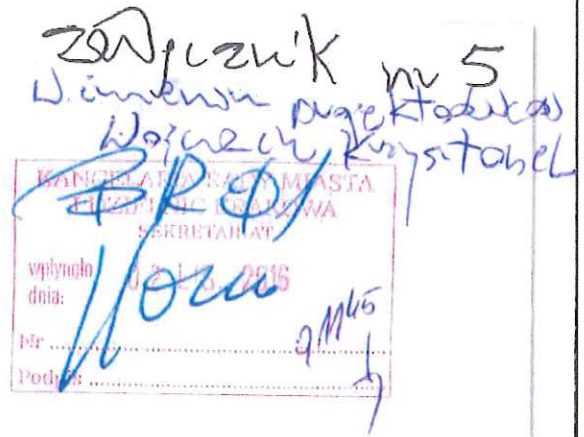 załącznik nr 5
W imieniu projektodawców
Wojciech Krzysztonek
KANCELARIA RADY MIASTA
I DZIELNIC KRAKOWA
SEKRETARIAT
wpłynęło
dnia:
2016
Nr
Podpis